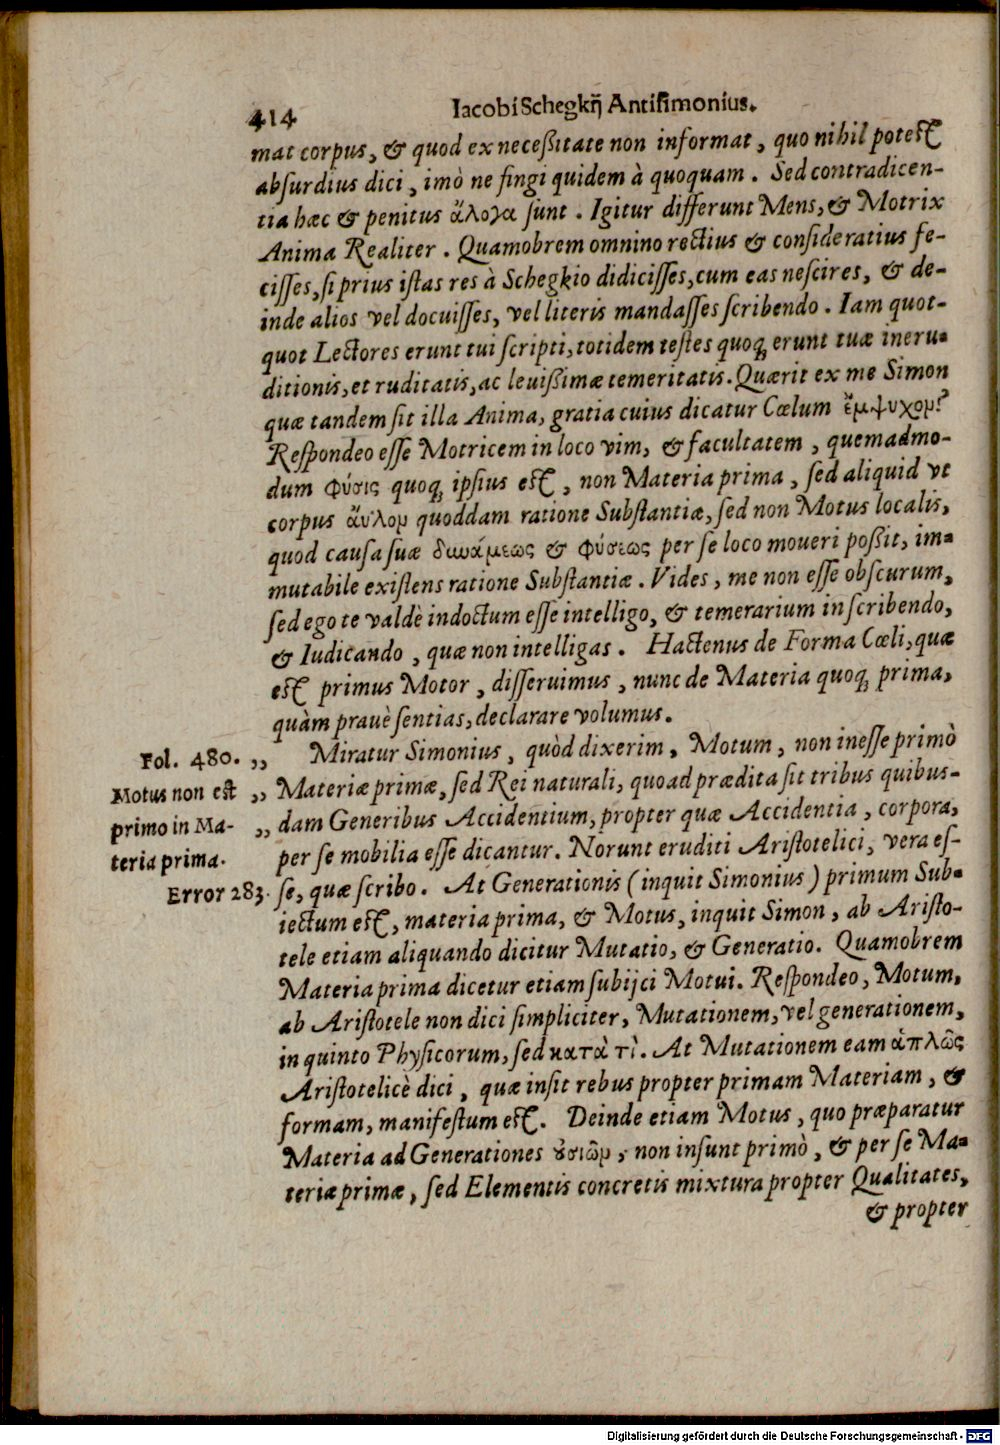 414
Iacobi Schegkij Antisimonius.
mat corpus, & quod ex neceßitate non informat, quo nihil potest
absurdius dici, imò ne fingi quidem à quoquam. Sed contradicen-
tia hæc & penitus ἄλογα sunt. Igitur differunt Mens, & Motrix
Anima Realiter. Quamobrem omnino rectius & consideratius fe-
cisses, si prius istas res à Schegkio didicisses, cum eas nescires, & de-
inde alios vel docuisses, vel literis mandasses scribendo. Iam quot-
quot Lectores erunt tui scripti, totidem testes quoq; erunt tuæ ineru-
ditionis, et ruditatis, ac leuißimæ temeritatis. Quærit ex me Simon
quæ tandem sit illa Anima, gratia cuius dicatur Cœlum ἔμψυχομ?
Respondeo esse Motricem in loco vim, & facultatem, quemadmo-
dum φύσις quoq; ipsius est, non Materia prima, sed aliquid vt
corpus ἄϋλομ quoddam ratione Substantiæ, sed non Motus localis,
quod causa suæ δυνάμεως & φύσεως per se loco moueri poßit, im-
mutabile existens ratione Substantiæ. Vides, me non esse obscurum,
sed ego te valdè indoctum esse intelligo, & temerarium in scribendo,
& Iudicando, quæ non intelligas. Hactenus de Forma Cœli, quæ
est primus Motor, disseruimus, nunc de Materia quoq; prima,
quàm prauè sentias, declarare volumus.
Fol. 480. ,, Miratur Simonius, quòd dixerim, Motum, non inesse primò
Motus non est ,, Materiæ primæ, sed Rei naturali, quoad prædita sit tribus quibus-
primo in Ma- ,, dam Generibus Accidentium, propter quæ Accidentia, corpora,
teria prima. per se mobilia esse dicantur. Norunt eruditi Aristotelici, vera es-
Error 283. se, quæ scribo. At Generationis (inquit Simonius) primum Sub-
iectum est, materia prima, & Motus, inquit Simon, ab Aristo-
tele etiam aliquando dicitur Mutatio, & Generatio. Quamobrem
Materia prima dicetur etiam subijci Motui. Respondeo, Motum,
ab Aristotele non dici simpliciter, Mutationem, vel generationem,
in quinto Physicorum, sed κατὰ τὶ. At Mutationem eam ἁπλῶς
Aristotelicè dici, quæ insit rebus propter primam Materiam, &
formam, manifestum est. Deinde etiam Motus, quo præparatur
Materia ad Generationes ȣσιῶμ, non insunt primò, & per se Ma-
teriæ primæ, sed Elementis concretis mixtura propter Qualitates,
& propter
Digitalisierung gefördert durch die Deutsche Forschungsgemeinschaft - DFG